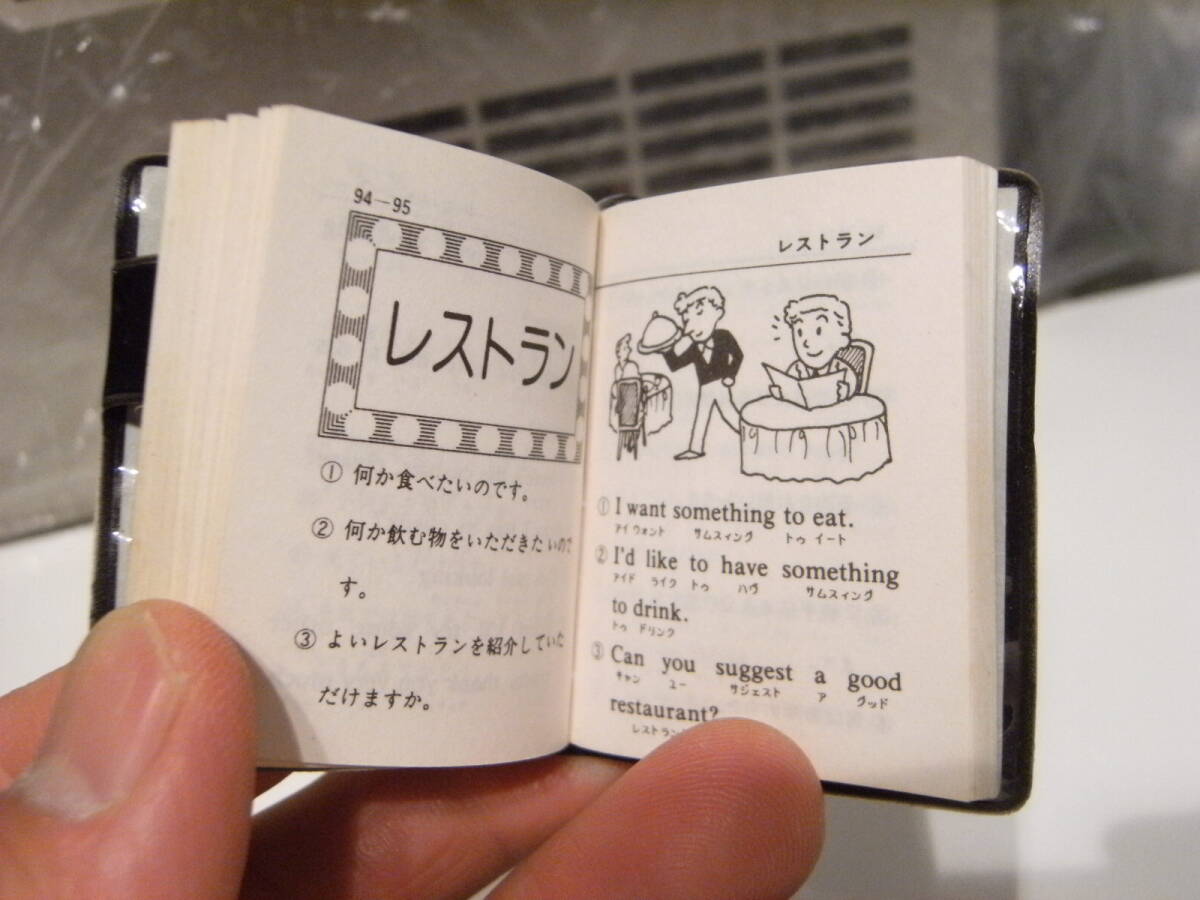 94—95
レストラン
① 何か食べたいのです。
② 何か飲む物をいただきたいので
す。
③ よいレストランを紹介していた
だけますか。
レストラン
① I want something to eat.
アイ ウォント サムスィング トゥ イート
② I'd like to have something
アイド ライク トゥ ハヴ サムスィング
to drink.
トゥ ドリンク
③ Can you suggest a good
キャン ユー サジェスト ア グッド
restaurant?
レストラン